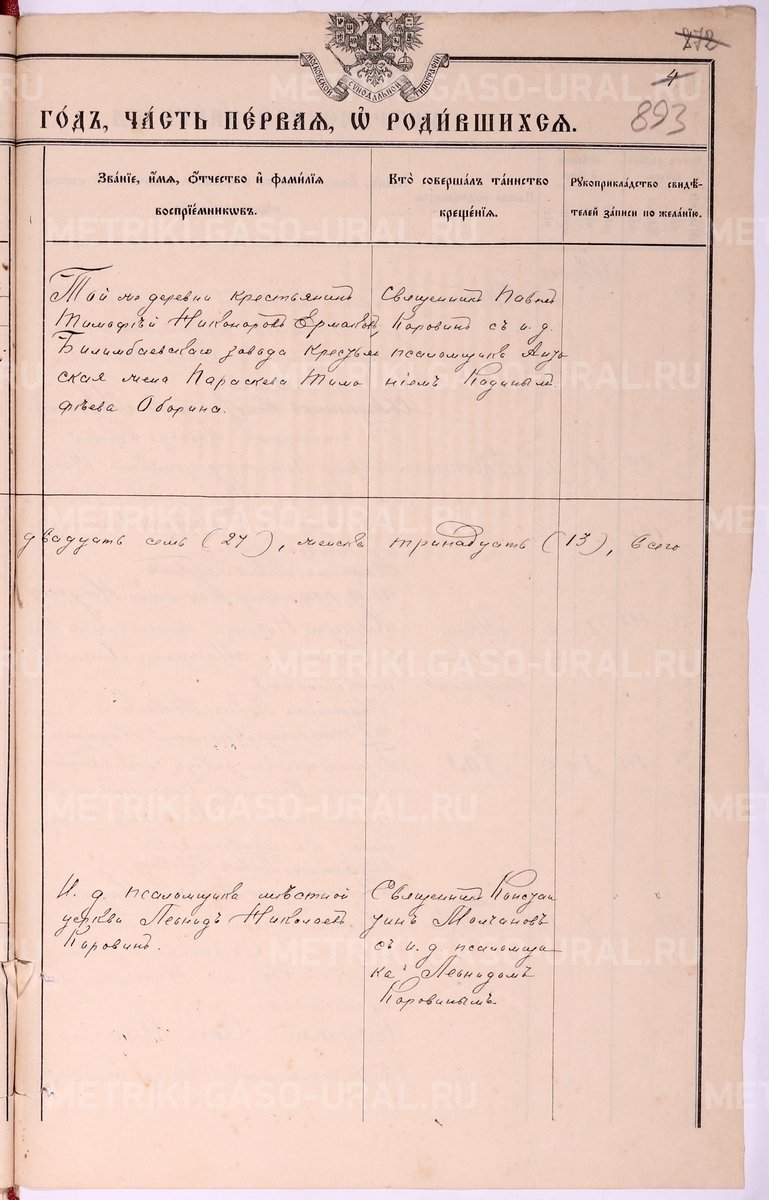 МОСКОВСКОЙ СѴНОДАЛЬНОЙ ТИПОГРАФІИ
272
4
893
ГО́ДЪ, ЧА́СТЬ ПЕ́РВАЯ, Ѡ҆ РОДИ́ВШИХСѦ.
Зва́нїе, и҆́мѧ, ѻ҆́тчество и҆ фами́лїѧ
воспрїе́мникѡвъ.
Кто̀ соверша́лъ та́инство
креще́нїѧ.
Рꙋкоприкла́дство свидѣ́-
телей за́писи по жела́нїю.
Той же деревни крестьянинъ
Тимофѣй Никоноровъ Ермаковъ,
Билимбаевскаго завода крестьян
ская жена Параскева Тимо
фѣева Оборина.
Священникъ Павелъ
Коровинъ съ и. д.
псаломщика Анто
ніемъ Кодинымъ.
двадцать семь (27), женска тринадцать (13), всего
И. д. псаломщика мѣстной
церкви Леонидъ Николаевъ
Коровинъ.
Священникъ Констан
тинъ Молчановъ
съ и. д. псаломщи
ка Леонидомъ
Коровинымъ.
METRIKI.GASO-URAL.RU